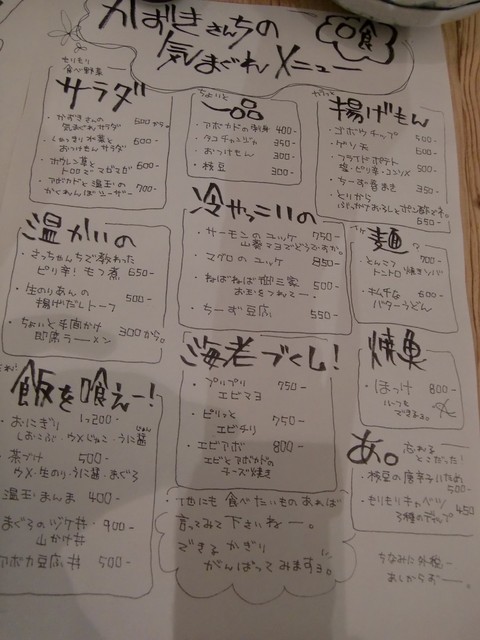 かおきさんちの
気まぐれメニュー
食
もりもり
食べ野菜
サラダ
・かずきさんの
気まぐれサラダ 600から。
・しゃきり水菜と
おつけもんサラダ 600-
・ホウレン草と
トロロでマゼマゼ 600-
・アボカドと温玉の
かくれんぼシーザー 700-
ちょいと
一品
・アボカドの刺身 400-
・タコチャンジャ 350-
・おつけもん 300-
・枝豆 300-
揚げもん
・ゴボウチップ 500-
・ゲソ天 500-
・フライドポテト
塩・ピリ辛・コンソメ 500-
・ちーず春まき 350-
・とりから
ぶっかけおろしとポン酢でネ。
650-
温かいの
・さっちゃんちで教わった
ピリ辛!もつ煮 650-
・生のりあんの
揚げだしトーフ 500-
・ちょいと手間かけ
即席ラーメン 300から。
冷やっこいの
・サーモンのユッケ 750-
山葵マヨでどうですか。
・マグロのユッケ 850-
・ねばねば御三家 500-
お玉をつれてー。
・ちーず豆腐 550-
麺
・とんこつ
トントロ焼きソバ 700-
・キムチな
バターうどん 600-
飯を喰えー!
・おにぎり 1つ200-
しおこぶ・ウメじゃこ・うに醤
・茶づけ 500-
ウメ・生のり・うに醤・まぐろ
温玉まんま 400-
まぐろのヅケ丼 900-
山かけ丼
アボカ豆腐丼 500-
海老づくし!
・プリプリ
エビマヨ 750-
・ピリッと
エビチリ 750-
・エビアボ 800-
エビとアボカドの
チーズ焼き
焼魚
・ほっけ 800-
いつも
できるよ。
あ。
忘れる
とこだった!
・枝豆の唐辛子いため
500-
・もりもりキャベツ 450
3種のディップ
他にも食べたいものあれば
言ってみて下さいねー。
できるかぎり
がんばってみますヨ。
ちなみに外税ー
あしからずー。